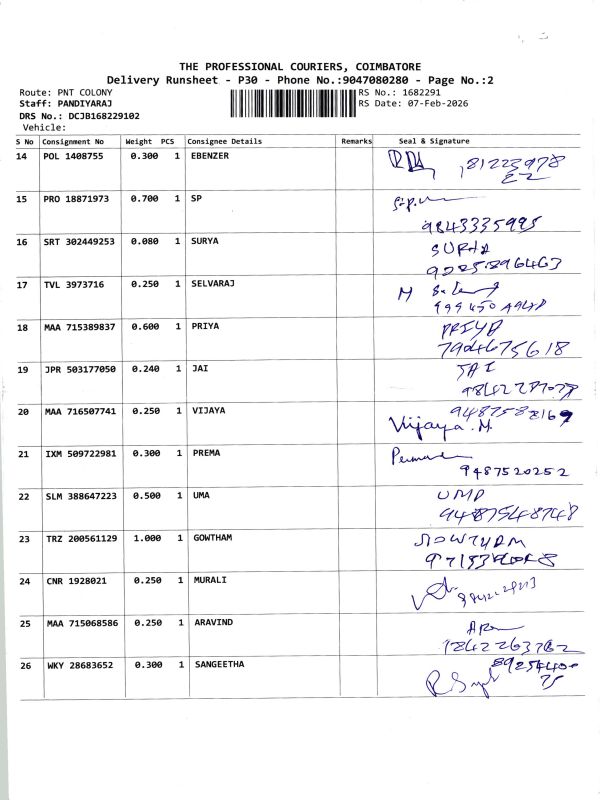 THE PROFESSIONAL COURIERS, COIMBATORE
Delivery Runsheet - P30 - Phone No.:9047080280 - Page No.:2
Route: PNT COLONY RS No.: 1682291
Staff: PANDIYARAJ RS Date: 07-Feb-2026
DRS No.: DCJB168229102
Vehicle:
S No Consignment No Weight PCS Consignee Details Remarks Seal & Signature
14 POL 1408755 0.300 1 EBENZER
15 PRO 18871973 0.700 1 SP
9843335995
16 SRT 302449253 0.080 1 SURYA
17 TVL 3973716 0.250 1 SELVARAJ M
18 MAA 715389837 0.600 1 PRIYA PRIYA
7904675618
19 JPR 503177050 0.240 1 JAI JAI
20 MAA 716507741 0.250 1 VIJAYA
Vijaya.M
21 IXM 509722981 0.300 1 PREMA
9487520252
22 SLM 388647223 0.500 1 UMA UMA
9487548748
23 TRZ 200561129 1.000 1 GOWTHAM GOWTHAM
24 CNR 1928021 0.250 1 MURALI
25 MAA 715068586 0.250 1 ARAVIND
26 WKY 28683652 0.300 1 SANGEETHA